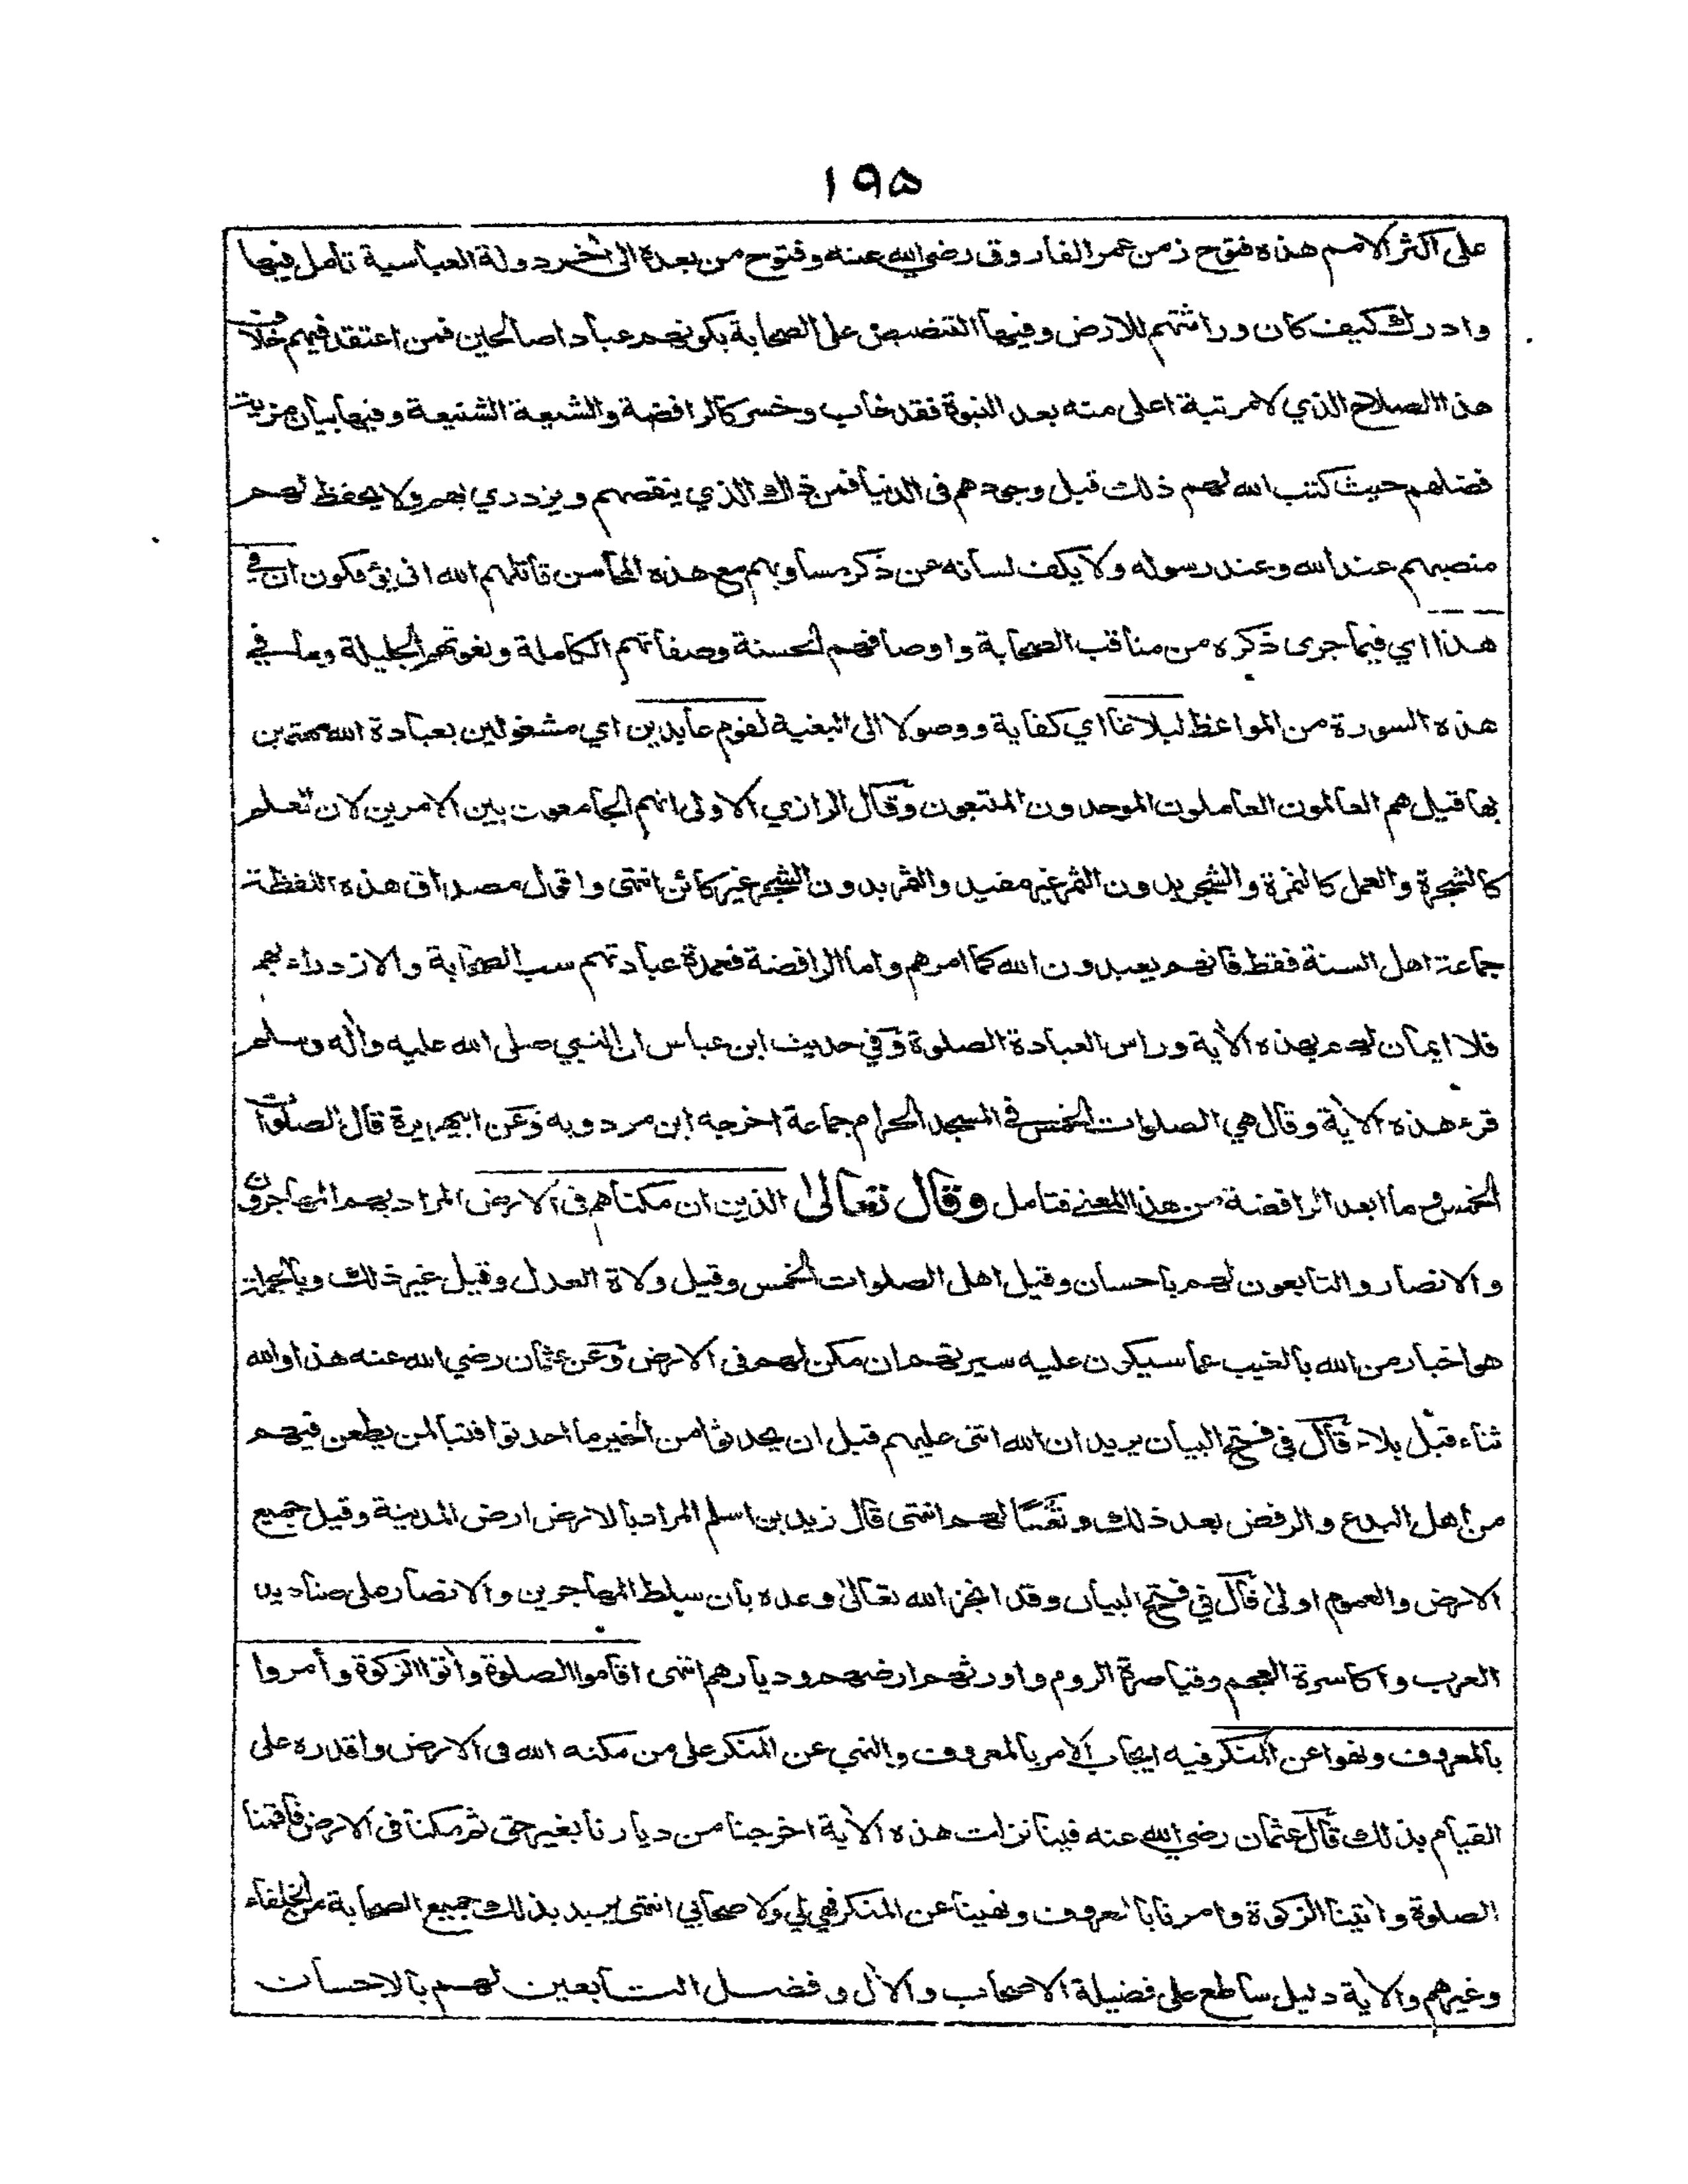 ۱۹۵
على اكثر الامم هذه فتوح زمن عمر الفاروق رضي الله عنه وفتوح من بعده الى أخر دولة العباسية تأمل فيها
وادرك كيف كان وراثتهم للارض وفيها التنصيص على الصحابة بكونهم عبادا صالحين فمن اعتقد فيهم خلاف
هذا الصلاح الذي لا مرتبة اعلى منه بعد النبوة فقد خاب وخسر كالرافضة والشيعة الشنيعة وفيها بيان مزية
فضلهم حيث كتب الله لهم ذلك قبل وجودهم فى الدنيا فمن ذاك الذي ينقصهم ويزدري بهم ولا يحفظ لهم
منصبهم عند الله وعند رسوله ولا يكف لسانه عن ذكر مساويهم مع هذه المحاسن قاتلهم الله انى يؤفكون ان في
هذا اي فيما جرى ذكره من مناقب الصحابة واوصافهم الحسنة وصفاتهم الكاملة ونعوتهم الجليلة وبما في
هذه السورة من المواعظ لبلاغا اي كفاية ووصولا الى البغية لقوم عابدين اي مشغولين بعبادة الله مهتمين
بها قيل هم العالمون العاملون الموحدون المتبعون وقال الرازي الاولى انهم الجامعون بين الامرين لان تعلم
كالشجرة والعمل كالثمرة والشجر بدون الثمر غير مفيد والثمر بدون الشجر غير كائن انتهى واقول مصداق هذه اللفظة
جماعة اهل السنة فقط فانهم يعبدون الله كما امرهم واما الرافضة فعمدة عبادتهم سب الصحابة والازدراء بهم
فلا ايمان لهم بهذه الأية وراس العبادة الصلوة وفي حديث ابن عباس ان النبي صلى الله عليه وأله وسلم
قرء هذه الأية وقال هي الصلوات الخمس في المسجد الحرام جماعة اخرجه ابن مردويه وعن ابيهريرة قال الصلوات
الخمس وما ابعد الرافضة من هذا المعنى فتامل وقال تعالى الذين ان مكناهم فى الارض المراد بهم المهاجرون
والانصار والتابعون لهم باحسان وقيل اهل الصلوات الخمس وقيل ولاة العدل وقيل غير ذلك وبالجملة
هو اخبار من الله بالغيب عما سيكون عليه سيرتهم ان مكن لهم فى الارض وعن عثمان رضي الله عنه هذا والله
ثناء قبل بلاء قال في فتح البيان يريد ان الله اثنى عليهم قبل ان يحدثوا من الخير ما احدثوا فتبا لمن يطعن فيهم
من اهل البدع والرفض بعد ذلك وتعسا لهم انتهى قال زيد بن اسلم المراد بالارض ارض المدينة وقيل جميع
الارض والعموم اولى قال في فتح البيان وقد انجز الله تعالى وعده بان سلط المهاجرين والانصار على صناديد
العرب واكاسرة العجم وقياصرة الروم واورثهم ارضهم وديارهم انتهى اقاموا الصلوة وأتوا الزكوة وأمروا
بالمعروف ونهوا عن المنكر فيه ايجاب الامر بالمعروف والنهي عن المنكر على من مكنه الله فى الارض واقدره على
القيام بذلك قال عثمان رضي الله عنه فينا نزلت هذه الأية اخرجنا من ديارنا بغير حق ثم مكنا فى الارض فاقمنا
الصلوة وأتينا الزكوة وامرنا بالمعروف ونهينا عن المنكر فهي لي ولاصحابي انتهى يريد بذلك جميع الصحابة من الخلفاء
وغيرهم والأية دليل ساطع على فضيلة الاصحاب والأل وفضل التابعين لهم بالاحسان